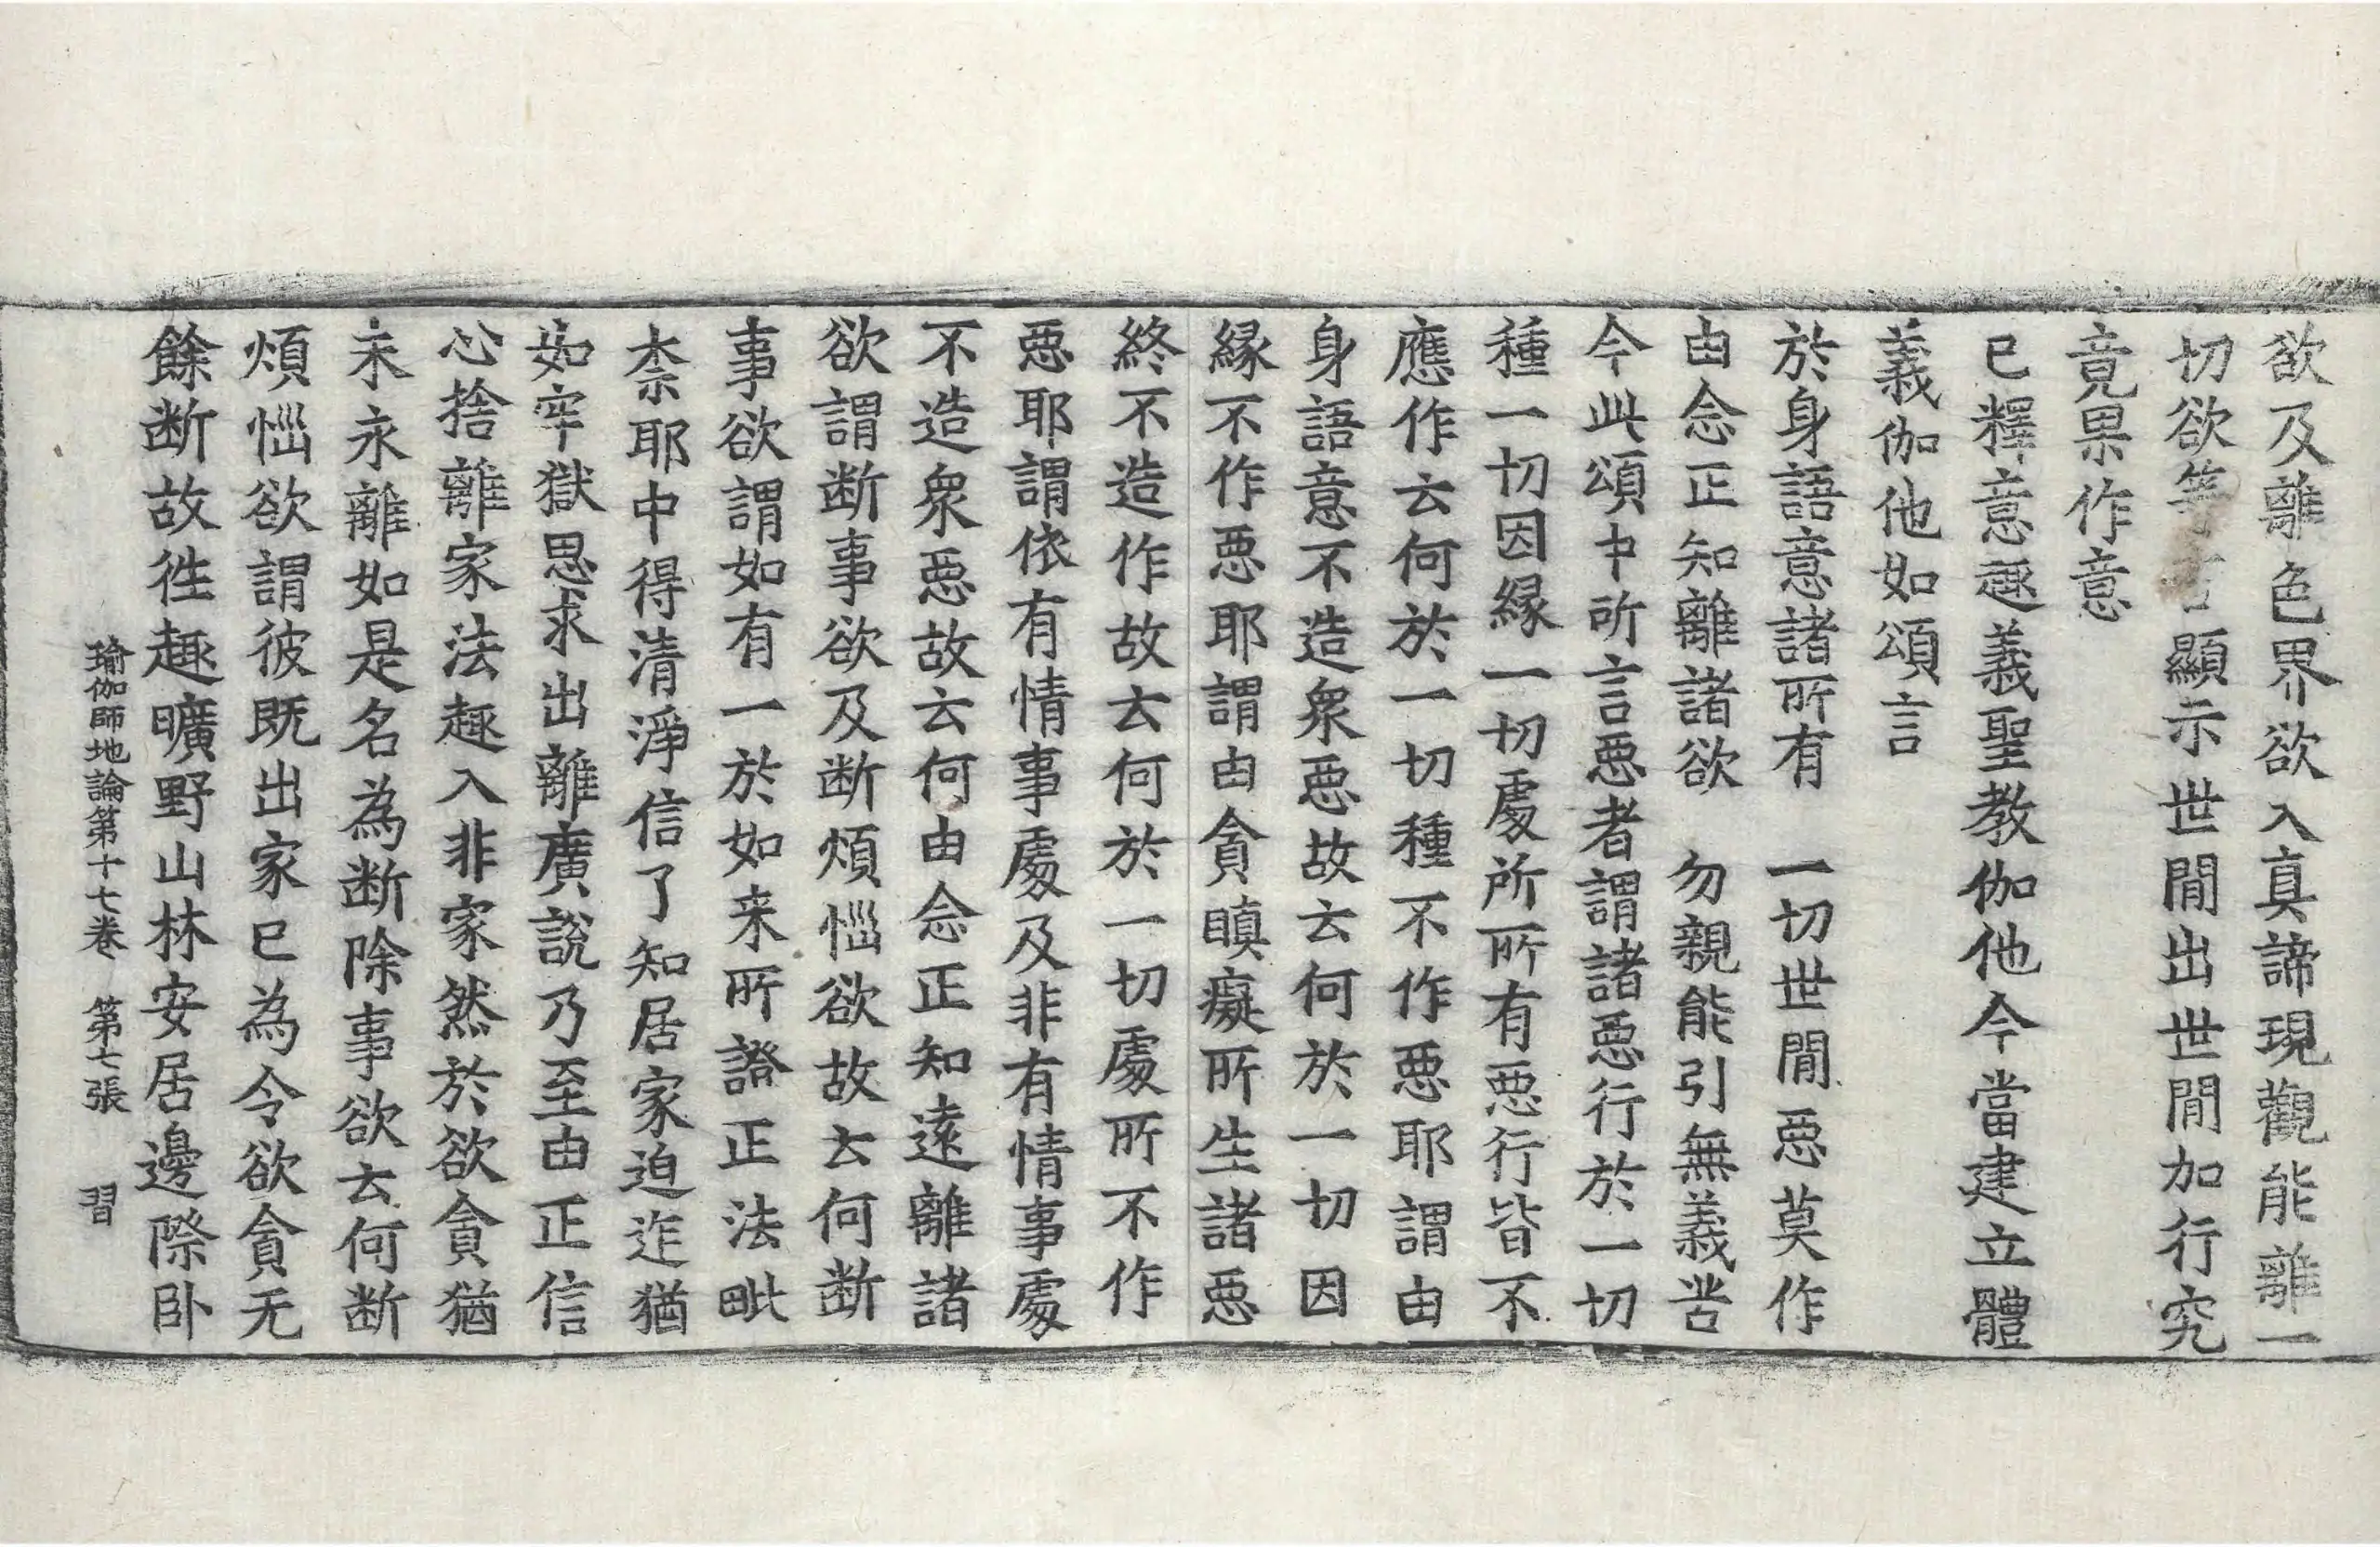 欲及離色界欲入真諦現觀能離一
切欲等言顯示世閒出世閒加行究
竟果作意
已釋意趣義聖教伽他今當建立體
義伽他如頌言
於身語意諸所有　一切世閒惡莫作
由念正知離諸欲　勿親能引無義苦
今此頌中所言惡者謂諸惡行於一切
種一切因緣一切處所所有惡行皆不
應作云何於一切種不作惡耶謂由
身語意不造衆惡故云何於一切因
緣不作惡耶謂由貪瞋癡所生諸惡
終不造作故云何於一切處所不作
惡耶謂依有情事處及非有情事處
不造衆惡故云何由念正知遠離諸
欲謂断事欲及断煩惱欲故云何断
事欲謂如有一於如来所證正法毗
柰耶中得清淨信了知居家迫迮猶
如牢獄思求出離廣說乃至由正信
心捨離家法趣入非家然於欲貪猶
未永離如是名為断除事欲云何断
煩惱欲謂彼既出家已為令欲貪无
餘断故徃趣曠野山林安居邊際卧
瑜伽師地論第十七卷　第七張　習